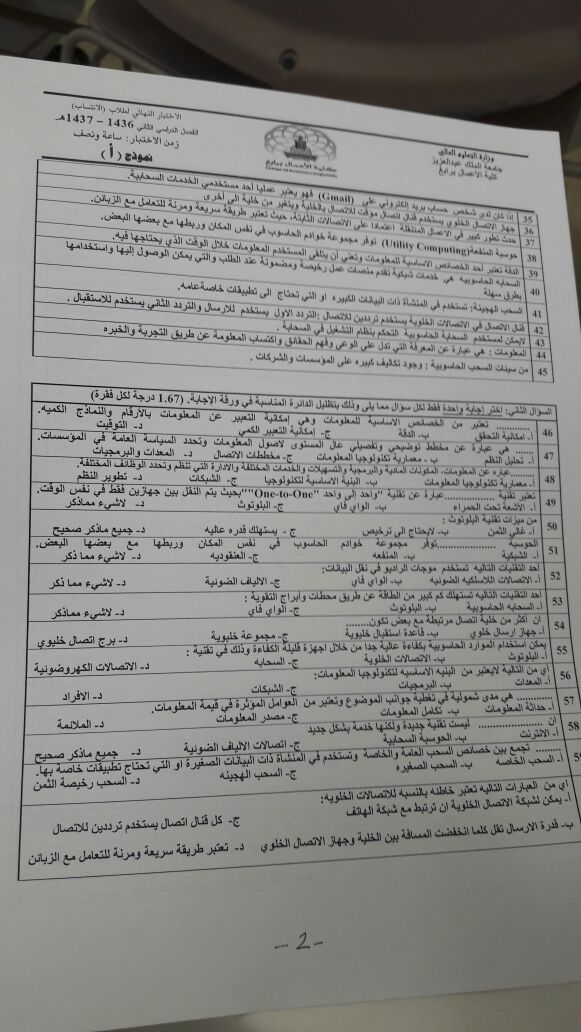 وزارة التعليم العالي
جامعة الملك عبدالعزيز
كلية الاعمال برابغ
كلية الأعمال برابغ
الاختبار النهائي لطلاب (الانتساب)
الفصل الدراسي الثاني 1436 – 1437هـ
زمن الاختبار: ساعة ونصف
نموذج ( أ )
35 إذا كان لدى شخص حساب بريد إلكتروني على (Gmail) فهو يعتبر عمليا احد مستخدمي الخدمات السحابية.
36 جهاز الاتصال الخلوي يستخدم قنال اتصال موقت للاتصال بالخلية ويتغير من خلية الى أخرى
37 حدث تطور كبير في الاعمال المتنقلة اعتمادا على الاتصالات الثابتة، حيث تعتبر طريقة سريعة ومرنة للتعامل مع الزبائن.
38 حوسبة المنفعة (Utility Computing) توفر مجموعة خوادم الحاسوب في نفس المكان وربطها مع بعضها البعض.
39 الدقة تعتبر أحد الخصائص الاساسية للمعلومات وتعني أن يتلقى المستخدم المعلومات خلال الوقت الذي يحتاجها فيه.
40 السحابه الحاسوبيه هي خدمات شبكية تقدم منصات عمل رخيصة ومضمونة عند الطلب والتي يمكن الوصول إليها واستخدامها
بطرق سهلة
41 السحب الهجينة: تستخدم في المنشأة ذات البيانات الكبيره او التي تحتاج الى تطبيقات خاصة عامه.
42 قنال الاتصال في الاتصالات الخلوية يستخدم ترددين للاتصال :التردد الاول يستخدم للارسال والتردد الثاني يستخدم للاستقبال .
43 لايمكن لمستخدم السحابة الحاسوبية التحكم بنظام التشغيل في السحابة .
44 المعلومات : هي عبارة عن المعرفة التي تدل على الوعي وفهم الحقائق واكتساب المعلومة عن طريق التجربة والخبره
45 من سيئات السحب الحاسوبية : وجود تكاليف كبيره على المؤسسات والشركات .
السؤال الثاني: اختر إجابة واحدة فقط لكل سؤال مما يلي وذلك بتظليل الدائرة المناسبة في ورقة الإجابة. (1.67 درجة لكل فقرة)
46 .......... تعتبر من الخصائص الاساسية للمعلومات وهي إمكانية التعبير عن المعلومات بالأرقام والنماذج الكميه.
أ- امكانية التحقق ب- الدقة ج- إمكانية التعبير الكمي د- التوقيت
47 ....... هي عبارة عن مخطط توضيحي وتفصيلي عال المستوى لاصول المعلومات وتحدد السياسة العامة في المؤسسات.
أ- تحليل النظم ب - معمارية تكنولوجيا المعلومات ج- مخططات الاتصال د- المعدات والبرمجيات
48 ..........عباره عن المعلومات، المكونات المادية والبرمجية والتسهيلات والخدمات المختلفة والادارة التي تنظم وتحدد الوظائف المختلفة.
أ- معمارية تكنولوجيا المعلومات ب- البنية الاساسية لتكنولوجيا ج- الشبكات د- تطوير النظم
49 تعتبر تقنية ..............عبارة عن تقنية "واحد إلى واحد "One-to-One"" بحيث يتم النقل بين جهازين فقط في نفس الوقت.
أ- الأشعة تحت الحمراء ب- الواي فاي ج- البلوتوث د- لاشيء مماذكر
50 من ميزات تقنية البلوتوث :
أ- غالي الثمن ب- لايحتاج الى ترخيص ج - يستهلك قدره عاليه د- جميع ماذكر صحيح
51 الحوسبة ..................توفر مجموعة خوادم الحاسوب في نفس المكان وربطها مع بعضها البعض.
أ- الشبكية ب- المنفعه ج- العنقوديه د- لاشيء مما ذكر
52 احد التقنيات التاليه تستخدم موجات الراديو في نقل البيانات:
أ- الاتصالات اللاسلكيه الضوئيه ب- الواي فاي ج- الالياف الضوئية د- لاشيء مما ذكر
53 احد التقنيات التاليه تستهلك كم كبير من الطاقة عن طريق محطات وأبراج التقوية :
أ- السحابه الحاسوبية ب- البلوتوث ج- الواي فاي د- لاشيء مماذكر
54 ان أكثر من خلية اتصال مرتبطة مع بعض تكون........
أ- جهاز ارسال خلوي ب- قاعدة استقبال خليوية ج- مجموعة خليوية د- برج اتصال خليوي
55 يمكن استخدام الموارد الحاسوبية بكفاءة عالية جدا من خلال اجهزة قليلة الكفاءة وذلك في تقنية :
أ- البلوتوث ب- الاتصالات الخلوية ج- السحابه د- الاتصالات الكهروضوئية
56 أي من التالية لايعتبر من البنيه الاساسيه لتكنولوجيا المعلومات:
أ- المعدات ب- البرمجيات ج- الشبكات د- الافراد
57 ............. هي مدى شمولية في تغطية جوانب الموضوع وتعتبر من العوامل الموثرة في قيمة المعلومات.
أ- حداثة المعلومات ب- تكامل المعلومات ج- مصدر المعلومات د- الملائمة
58 ان ................ ليست تقنية جديدة ولكنها خدمة بشكل جديد
أ- الانترنت ب- الحوسبة السحابية ج- اتصالات الالياف الضوئية د- جميع ماذكر صحيح
59 ........ تجمع بين خصائص السحب العامة والخاصة وتستخدم في المنشاة ذات البيانات الصغيرة او التي تحتاج تطبيقات خاصة بها.
أ- السحب الخاصه ب- السحب الصغيره ج- السحب الهجينه د- السحب رخيصة الثمن
اي من العبارات التاليه تعتبر خاطئه بالنسبه للاتصالات الخلويه:
أ- يمكن لشبكة الاتصال الخلوية ان ترتبط مع شبكة الهاتف ج- كل قنال اتصال يستخدم ترددين للاتصال
ب- قدرة الارسال تقل كلما انخفضت المسافة بين الخلية وجهاز الاتصال الخلوي د- تعتبر طريقة سريعة ومرنة للتعامل مع الزبائن
- 2 -